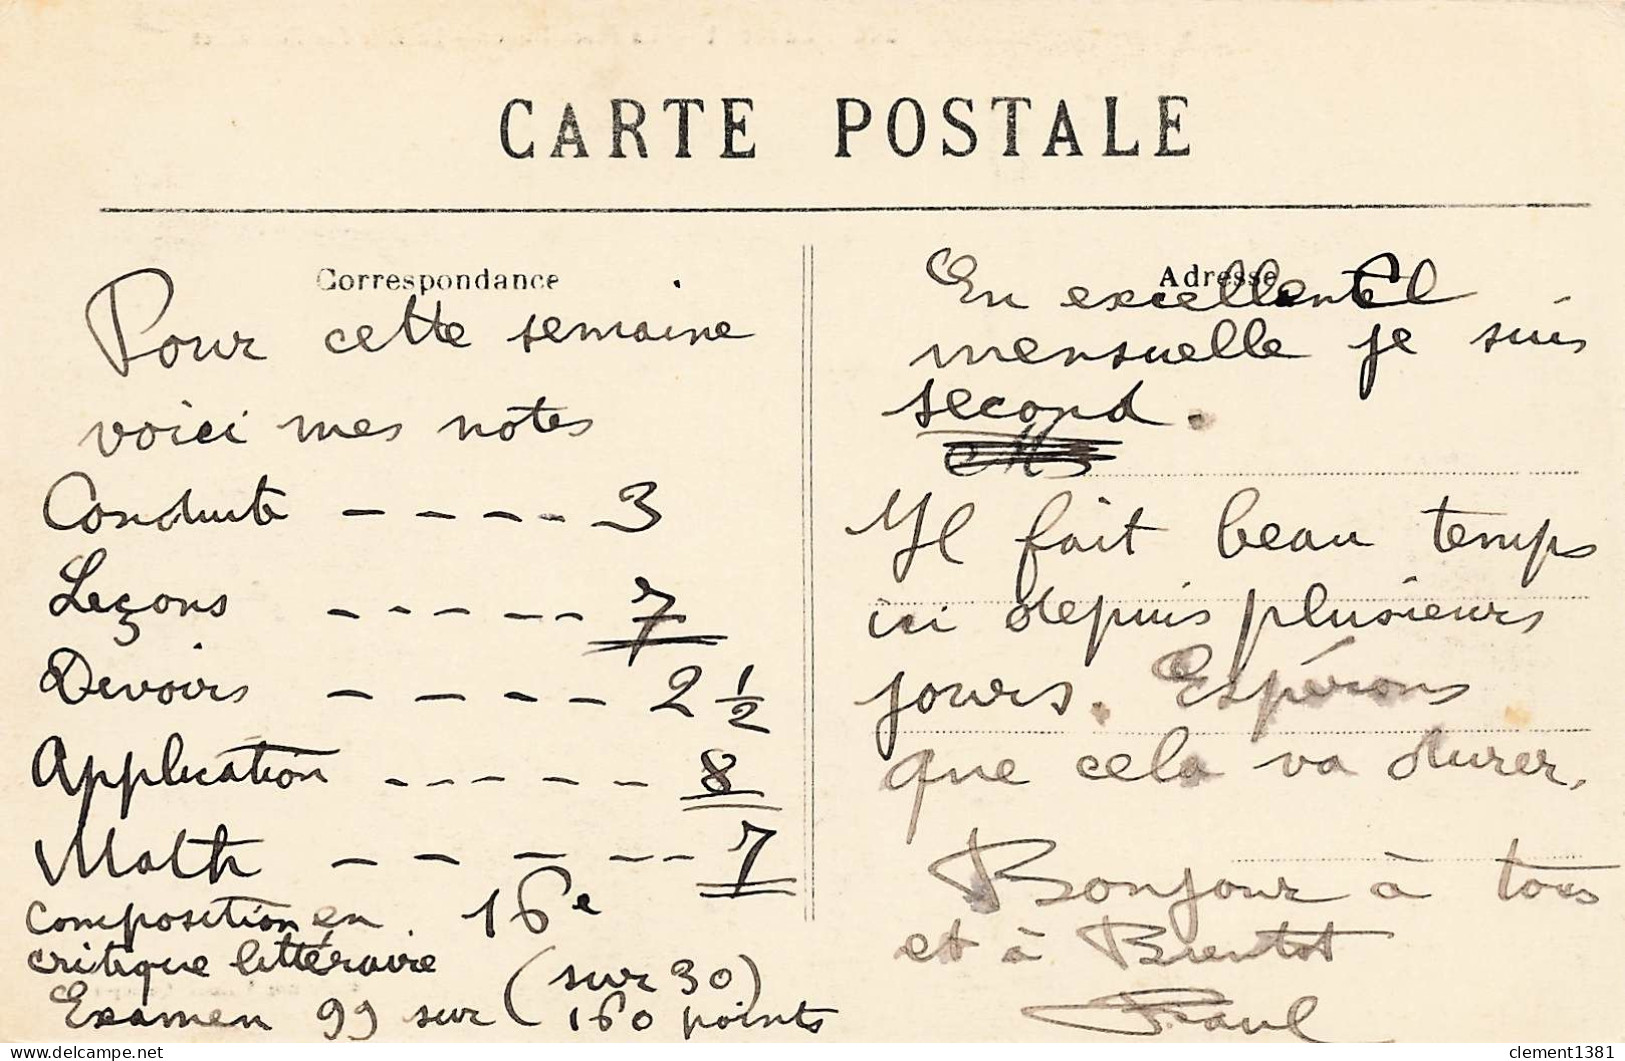 CARTE POSTALE
Correspondance
Pour cette semaine
voici mes notes
Conduite - - - - 3
Leçons - - - - - 7
Devoirs - - - - 2 1/2
Application - - - - - 8
Math - - - - - 7
composition en 16e
critique littéraire (sur 30)
Examen 99 sur 160 points
Adresse
En excellent El
mensuelle je suis
second.
Il fait beau temps
ici depuis plusieurs
jours. Espérons
que cela va durer.
Bonjour à tous
et à Bientot
Paul
clement1381